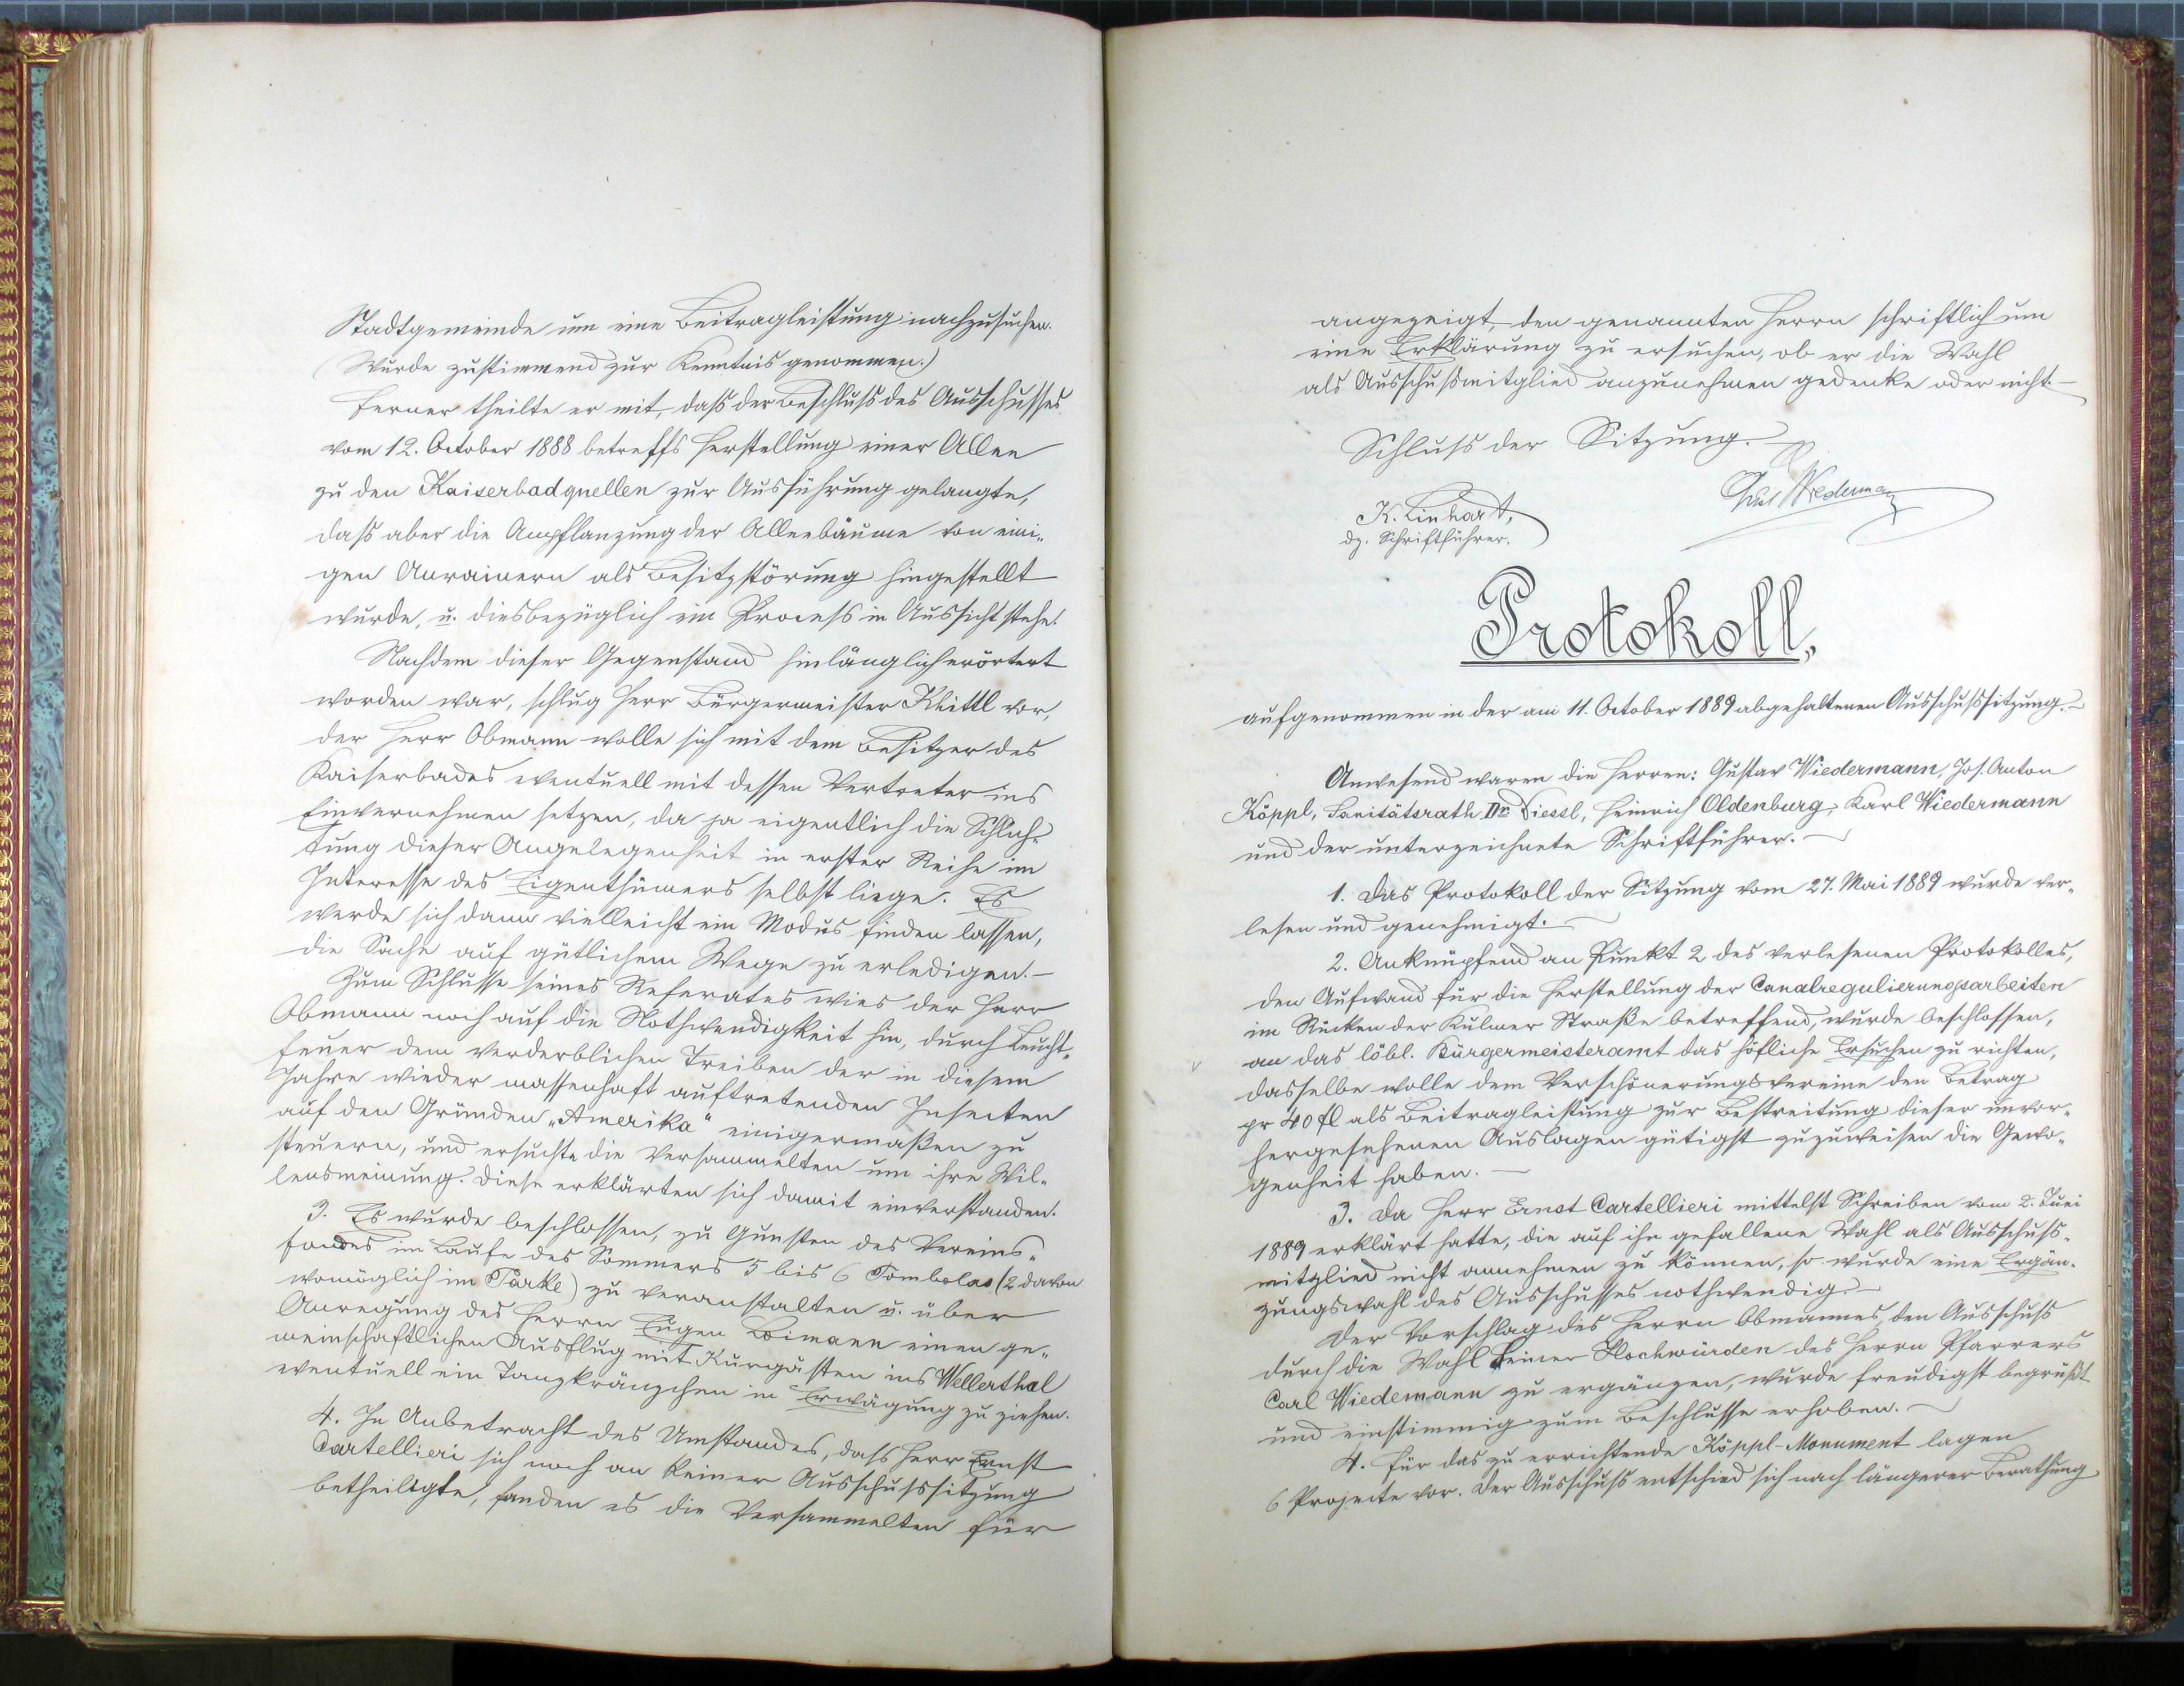 Stadtgemeinde um eine Beitragleistung nachzusuchen.
(Wurde zustimmend zur Kenntnis genommen.)
Ferner theilte er mit, daß der Beschluß des Ausschusses
vom 12. October 1888 betreffs Herstellung einer Allee
zu den Kaiserbadquellen zur Ausführung gelangte,
daß aber die Anpflanzung der Alleebäume von eini„
gen Anrainern als Besitzstörung hingestellt
wurde, u. diesbezüglich ein Process in Aussicht stehe.
Nachdem dieser Gegenstand hinlänglich erörtert
worden war, schlug Herr Bürgermeister Khittl vor,
der Herr Obmann wolle sich mit dem Besitzer des
Kaiserbades eventuell mit dessen Vertreter ins
Einvernehmen setzen, da ja eigentlich die Schlich„
tung dieser Angelegenheit in erster Reihe im
Interesse des Eigenthümers selbst liege. Es
werde sich dann vielleicht ein Modus finden lassen,
die Sache auf gütlichem Wege zu erledigen.–
Zum Schlusse seines Referates wies der Herr
Obmann noch auf die Nothwendigkeit hin, durch Leucht„
feuer dem verderblichen Treiben der in diesem
Jahre wieder massenhaft auftretenden Insecten
auf den Gründen „Amerika“ einigermaßen zu
steuern, und ersuchte die Versammelten um ihre Wil„
lensmeinung. Diese erklärten sich damit einverstanden.
3. Es wurde beschlossen, zu Gunsten des Vereins„
fondes im Laufe des Sommers 5 bis 6 Tombolas (2 davon
womöglich im Parke) zu veranstalten u. über
Anregung des Herrn Eugen Loimann einen ge„
meinschaftlichen Ausflug mit Kurgästen ins Wellerthal
eventuell ein Tanzkränzchen in Erwägung zu ziehen.
4. In Anbetracht des Umstandes, dass Herr Ernst
Cartellieri sich noch an keiner Ausschusssitzung
betheiligte, fanden es die Versammelten für
angezeigt, den genannten Herrn schriftlich um
eine Erklärung zu ersuchen, ob er die Wahl
als Ausschußmitglied anzunehmen gedenke oder nicht.–
Schluss der Sitzung.
Gust Wiedermann
K. Linhart,
dz. Schriftführer.
Protokoll,
aufgenommen in der am 11. October 1889 abgehaltenen Ausschußsitzung.–
Anwesend waren die Herren: Gustav Wiedermann, Jos. Anton
Köppl, Sanitätsrath Dr. Diessl, Heinrich Oldenburg, Karl Wiedermann
und der unterzeichnete Schriftführer.–
1. Das Protokoll der Sitzung vom 27. Mai 1889 wurde ver„
lesen und genehmigt.–
2. Anknüpfend an Punkt 2 des verlesenen Protokolles,
den Aufwand für die Herstellung der Canalregulierungsarbeiten
im Rücken der Kulmer Straße betreffend, wurde beschlossen,
an das löbl. Bürgermeisteramt das höfliche Ersuchen zu richten,
dasselbe wolle dem Verschönerungsvereine den Betrag
pr 40 fl als Beitragleistung zur Bestreitung dieser unvor„
hergesehenen Auslagen gütigst zuzuweisen die Gewo„
genheit haben.–
3. Da Herr Ernst Cartellieri mittelst Schreiben vom 2. Juni
1889 erklärt hatte, die auf ihn gefallene Wahl als Ausschuss„
mitglied nicht annehmen zu können, so wurde eine Ergän„
zungswahl des Ausschusses nothwendig.–
Der Vorschlag des Herrn Obmannes, den Ausschuss
durch die Wahl Seiner Hochwürden des Herrn Pfarrers
Carl Wiedemann zu ergänzen, wurde freudigst begrüßt
und einstimmig zum Beschlusse erhoben.–
4. Für das zu errichtende Köppl-Monument lagen
6 Projecte vor. Der Ausschuss entschied sich nach längerer Berathung